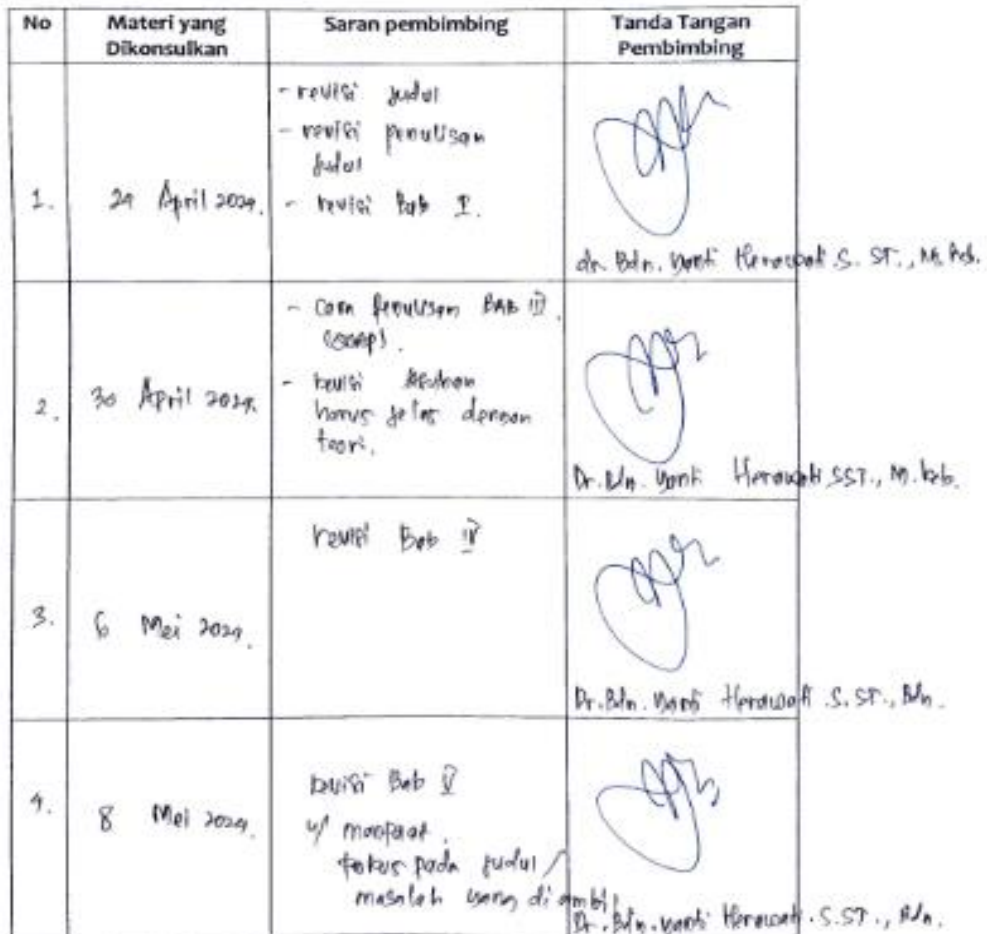 No Materi yang Dikonsulkan Saran pembimbing Tanda Tangan Pembimbing
1. 24 April 2024.
- revisi judul
- revisi penulisan
judul
- revisi Bab I.
dr. Bdn. Yanti Herawati S. ST., M. Keb.
2. 30 April 2024.
- Cara penulisan BAB III.
(soap).
- revisi
harus jelas dengan
teori.
Dr. Bdn. Yanti Herawati SST., M. Keb.
3. 6 Mei 2024.
revisi Bab IV
Dr. Bdn. Yanti Herawati S. ST., Bdn.
4. 8 Mei 2024.
revisi Bab V
u/ manfaat.
fokus pada judul /
masalah yang di ambil
Dr. Bdn. Yanti Herawati. S.ST., Bdn.